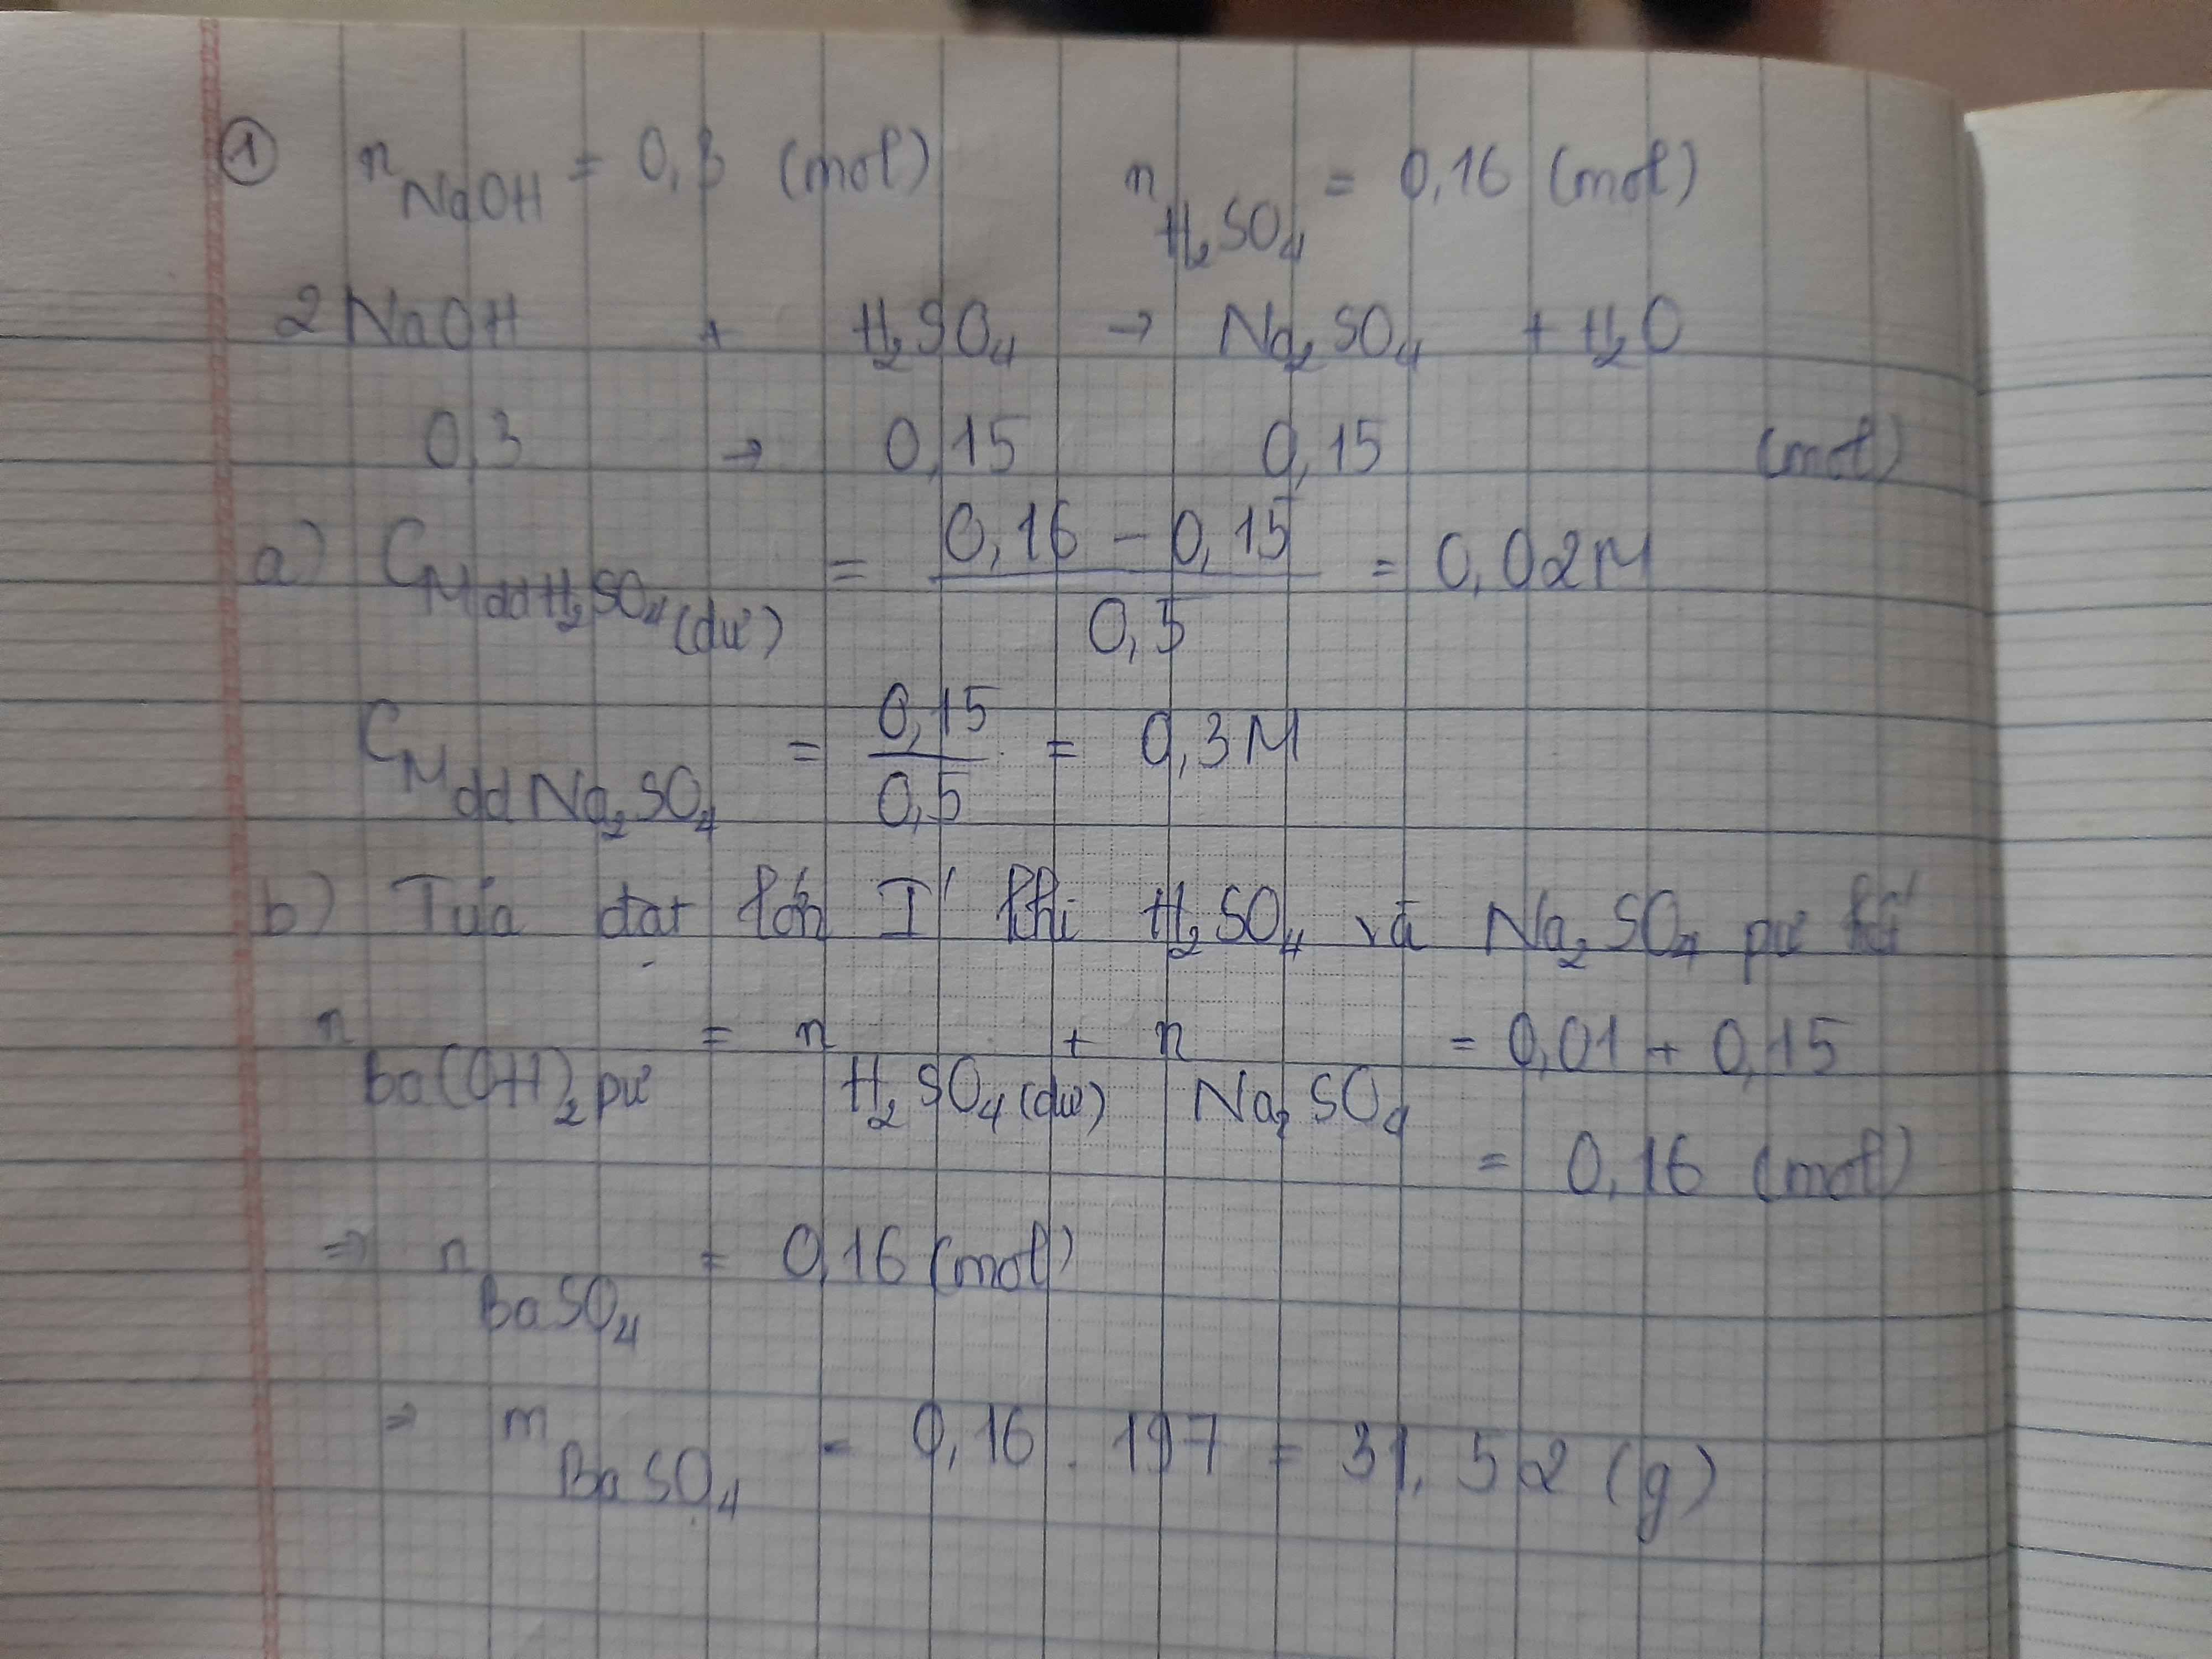 ① nNaOH = 0,3 (mol) nH₂SO₄ = 0,16 (mol)
2NaOH + H₂SO₄ → Na₂SO₄ + H₂O
0,3 → 0,15 0,15 (mol)
a) CM dd H₂SO₄ (dư) = (0,16 - 0,15)/0,5 = 0,02M
CM dd Na₂SO₄ = 0,15/0,5 = 0,3M
b) Tủa đạt lớn I' khi H₂SO₄ và Na₂SO₄ pư
nBa(OH)₂ pư = nH₂SO₄ (dư) + nNa₂SO₄ = 0,01 + 0,15
= 0,16 (mol)
⇒ nBaSO₄ = 0,16 (mol)
⇒ mBaSO₄ = 0,16 . 197 = 31,52 (g)